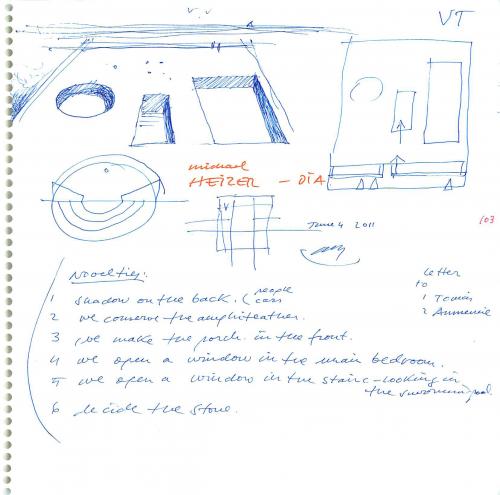 VT
michael
HEIZER - DIA
June 4 2011
103
Novelties:
1 shadow on the back. (people
cars
2 we conserve the amphiteather.
3 we make the porch in the front.
4 we open a window in the main bedroom.
5 we open a window in the stairs - looking in
the swimming pool.
6 decide the stone.
Letter
to
1 Tomás
2